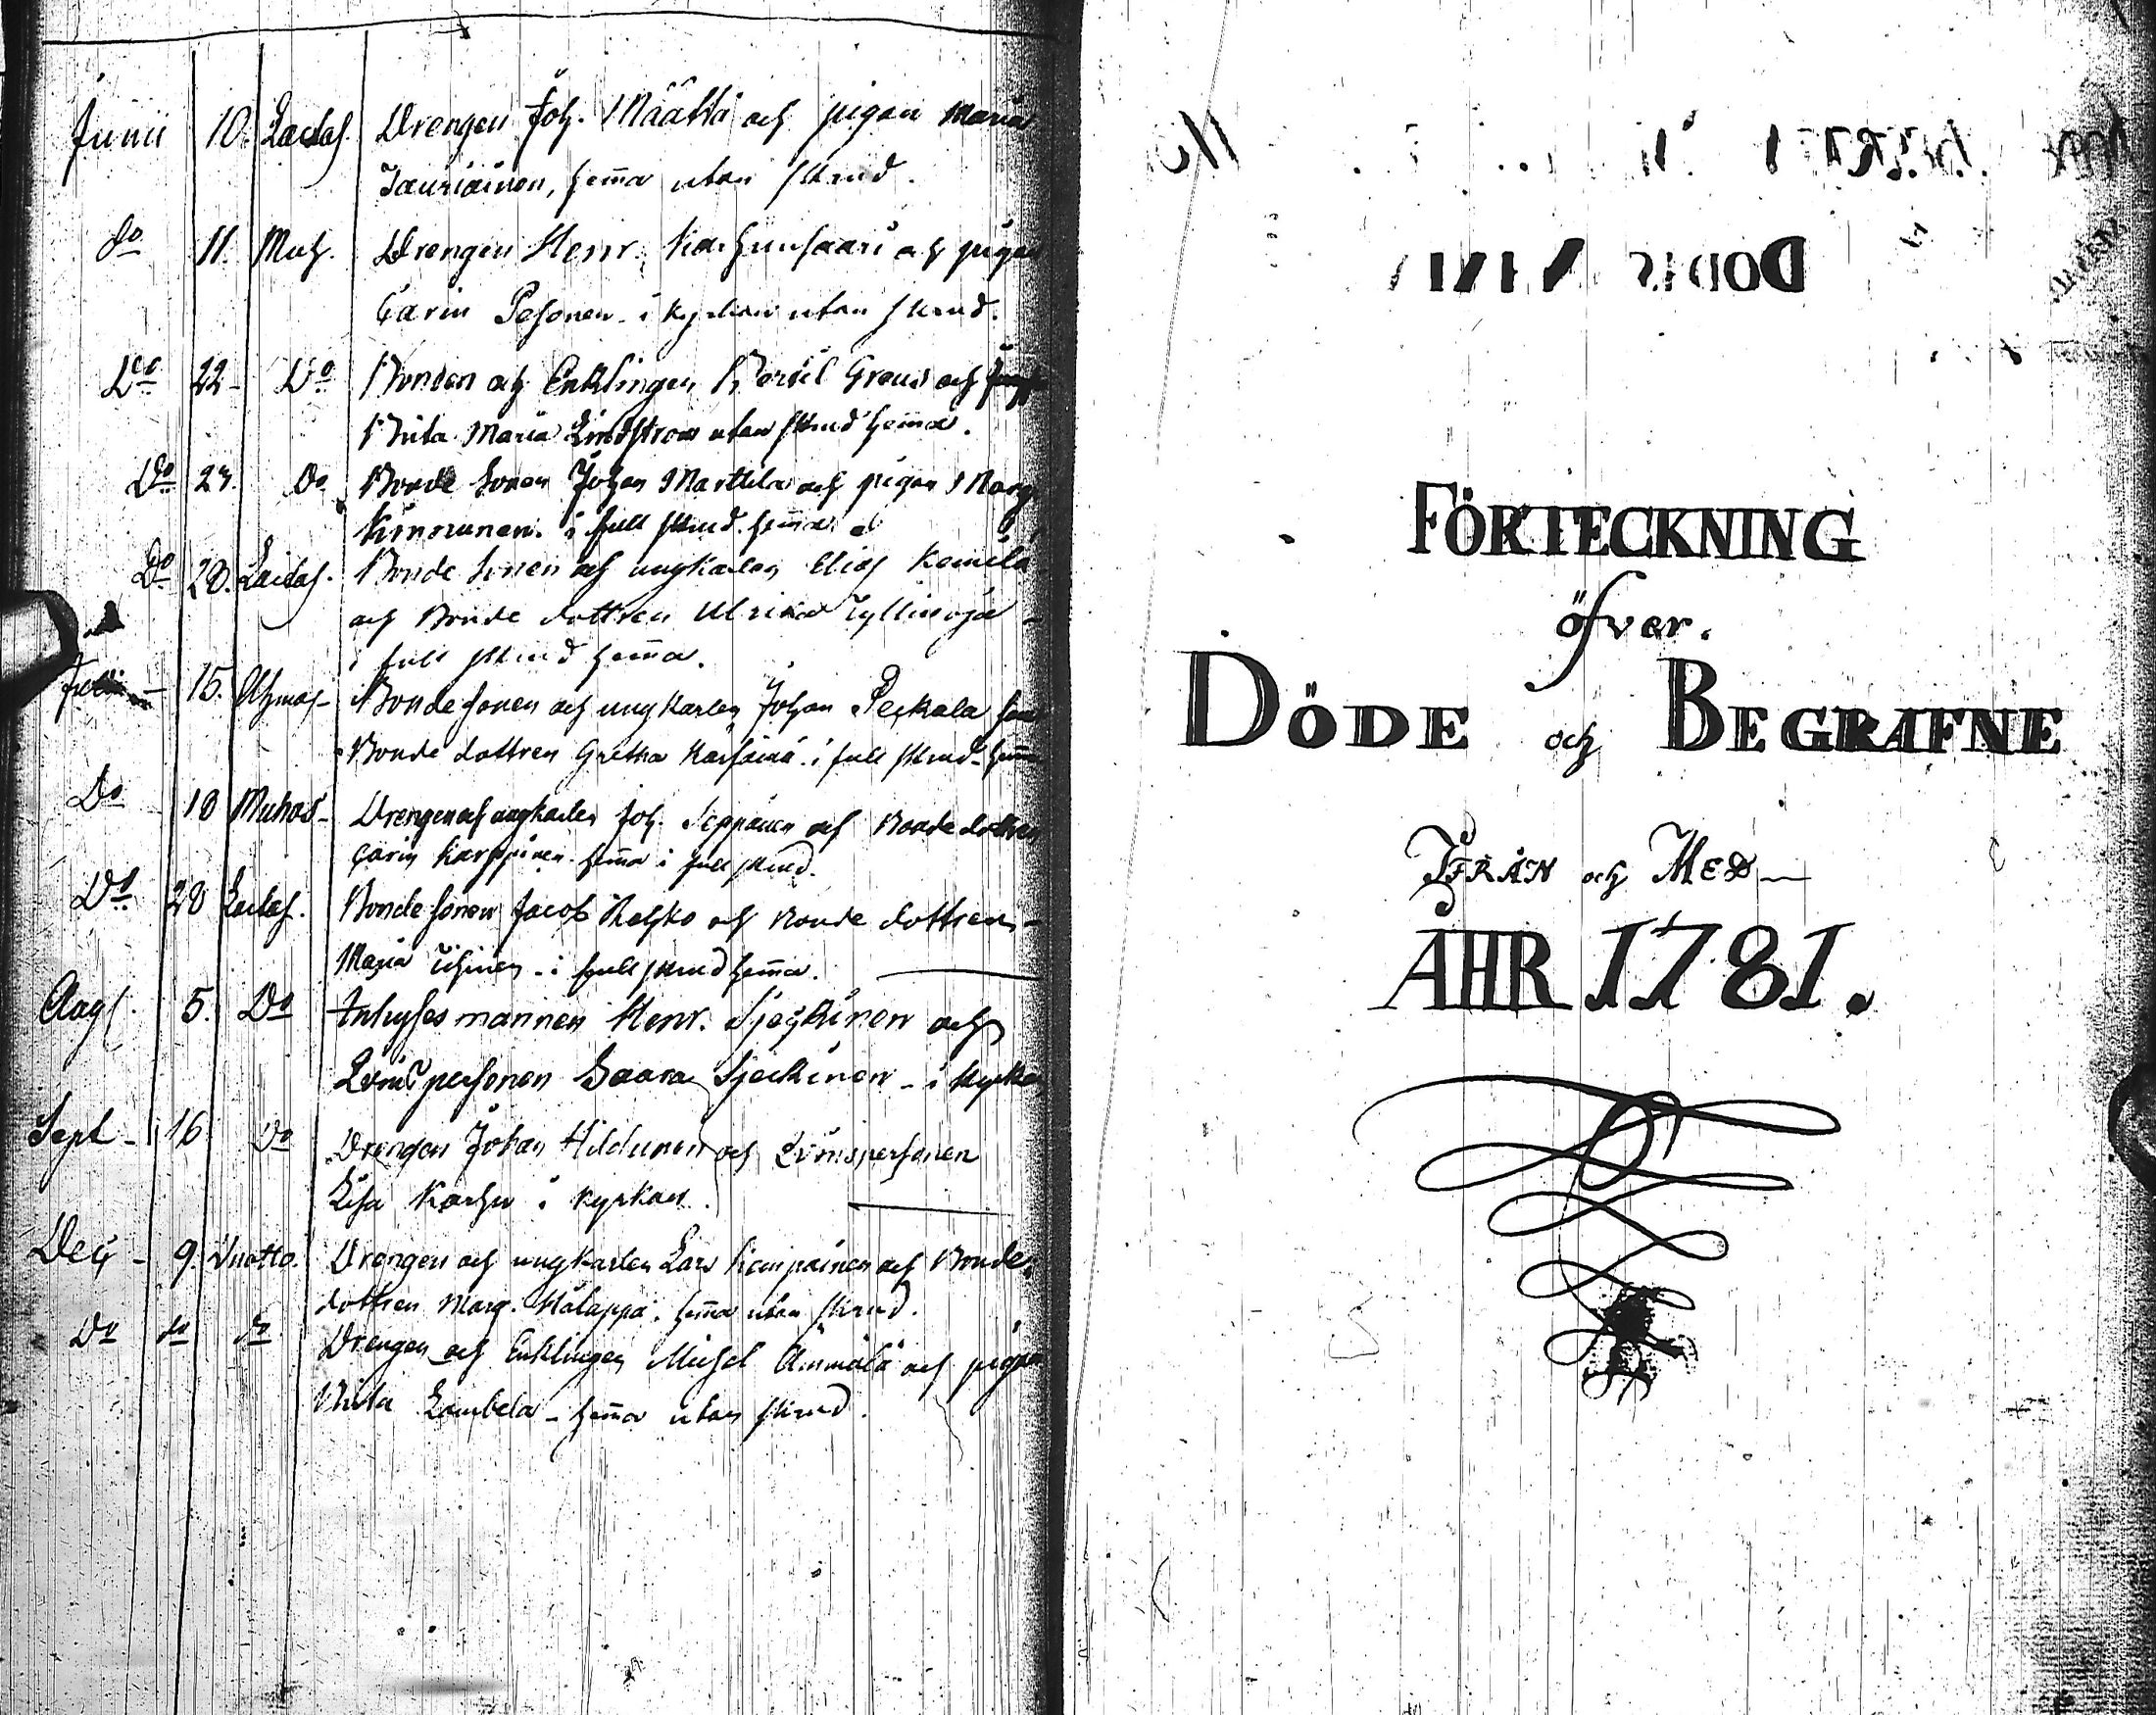 Junii 10. Laitas. Drengen Joh. Määttä och pigan Maria
Jauriainen, hem̄a utan skrud.
do 11. Muh. Drengen Henr. Karhunsaari och pigan
Carin Pesonen i kyrkan utan skrud.
Do 22 Do Bonden och Enklingen Bertil Graus och
Brita Maria Lindstrom utan skrud hem̄a.
Do 27. Do Bonde Sonen Johan Marttila och pigan Marg.
Kinnunen. i full skrud hem̄a
Do 28. Laitas. Bonde Sonen och ungkarlen Elias
och Bonde dottren Ulrica Tyllinoja
i full skrud hem̄a.
15. Bonde Sonen och ungkarlen Johan Peckala
Bonde dottren Gretha i full skrud hem̄a
Do 18 Muhos Drengen och ungkarlen Joh. Seppänen och Bonde dottren
Carin Karppinen hem̄a i full skrud.
Do 28 Laitas. Bonde Sonen Jacob och Bonde dottren
Maria Tihinen i full skrud hem̄a.
Aug. 5. Do Inhyses mannen Henr. och
Qvinspersonen Saara i kyrkan
Sept 16 Do Drengen Johan Hildunen och Qvinspersonen
Lisa Karhu i kyrkan.
Dec 9. Drengen och ungkarlen Lars och Bonde
dottren Marg. Halappa. hem̄a utan skrud.
Do do do Drengen och Enklingen Michel Ämmälä och pigan
Brita Lambela hem̄a utan skrud.
FÖRTECKNING
öfver.
DÖDE och BEGRAFNE
IFRÅN och MED
ÅHR 1781.